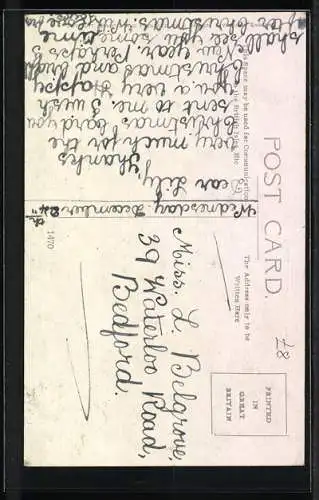 POST CARD.
This space may be used for Communication
The Address only to be
Written Here
PRINTED
IN
GREAT
BRITAIN
£8
1470
Wednesday December 24th
Dear Lily,
Thanks
very much for the
Christmas Card you
sent to me. I wish
you a very Happy
Christmas and
New year. Perhaps I
shall see you some time
for Christmas.
Miss. L. Belgrove,
39 Waterloo Road,
Bedford.